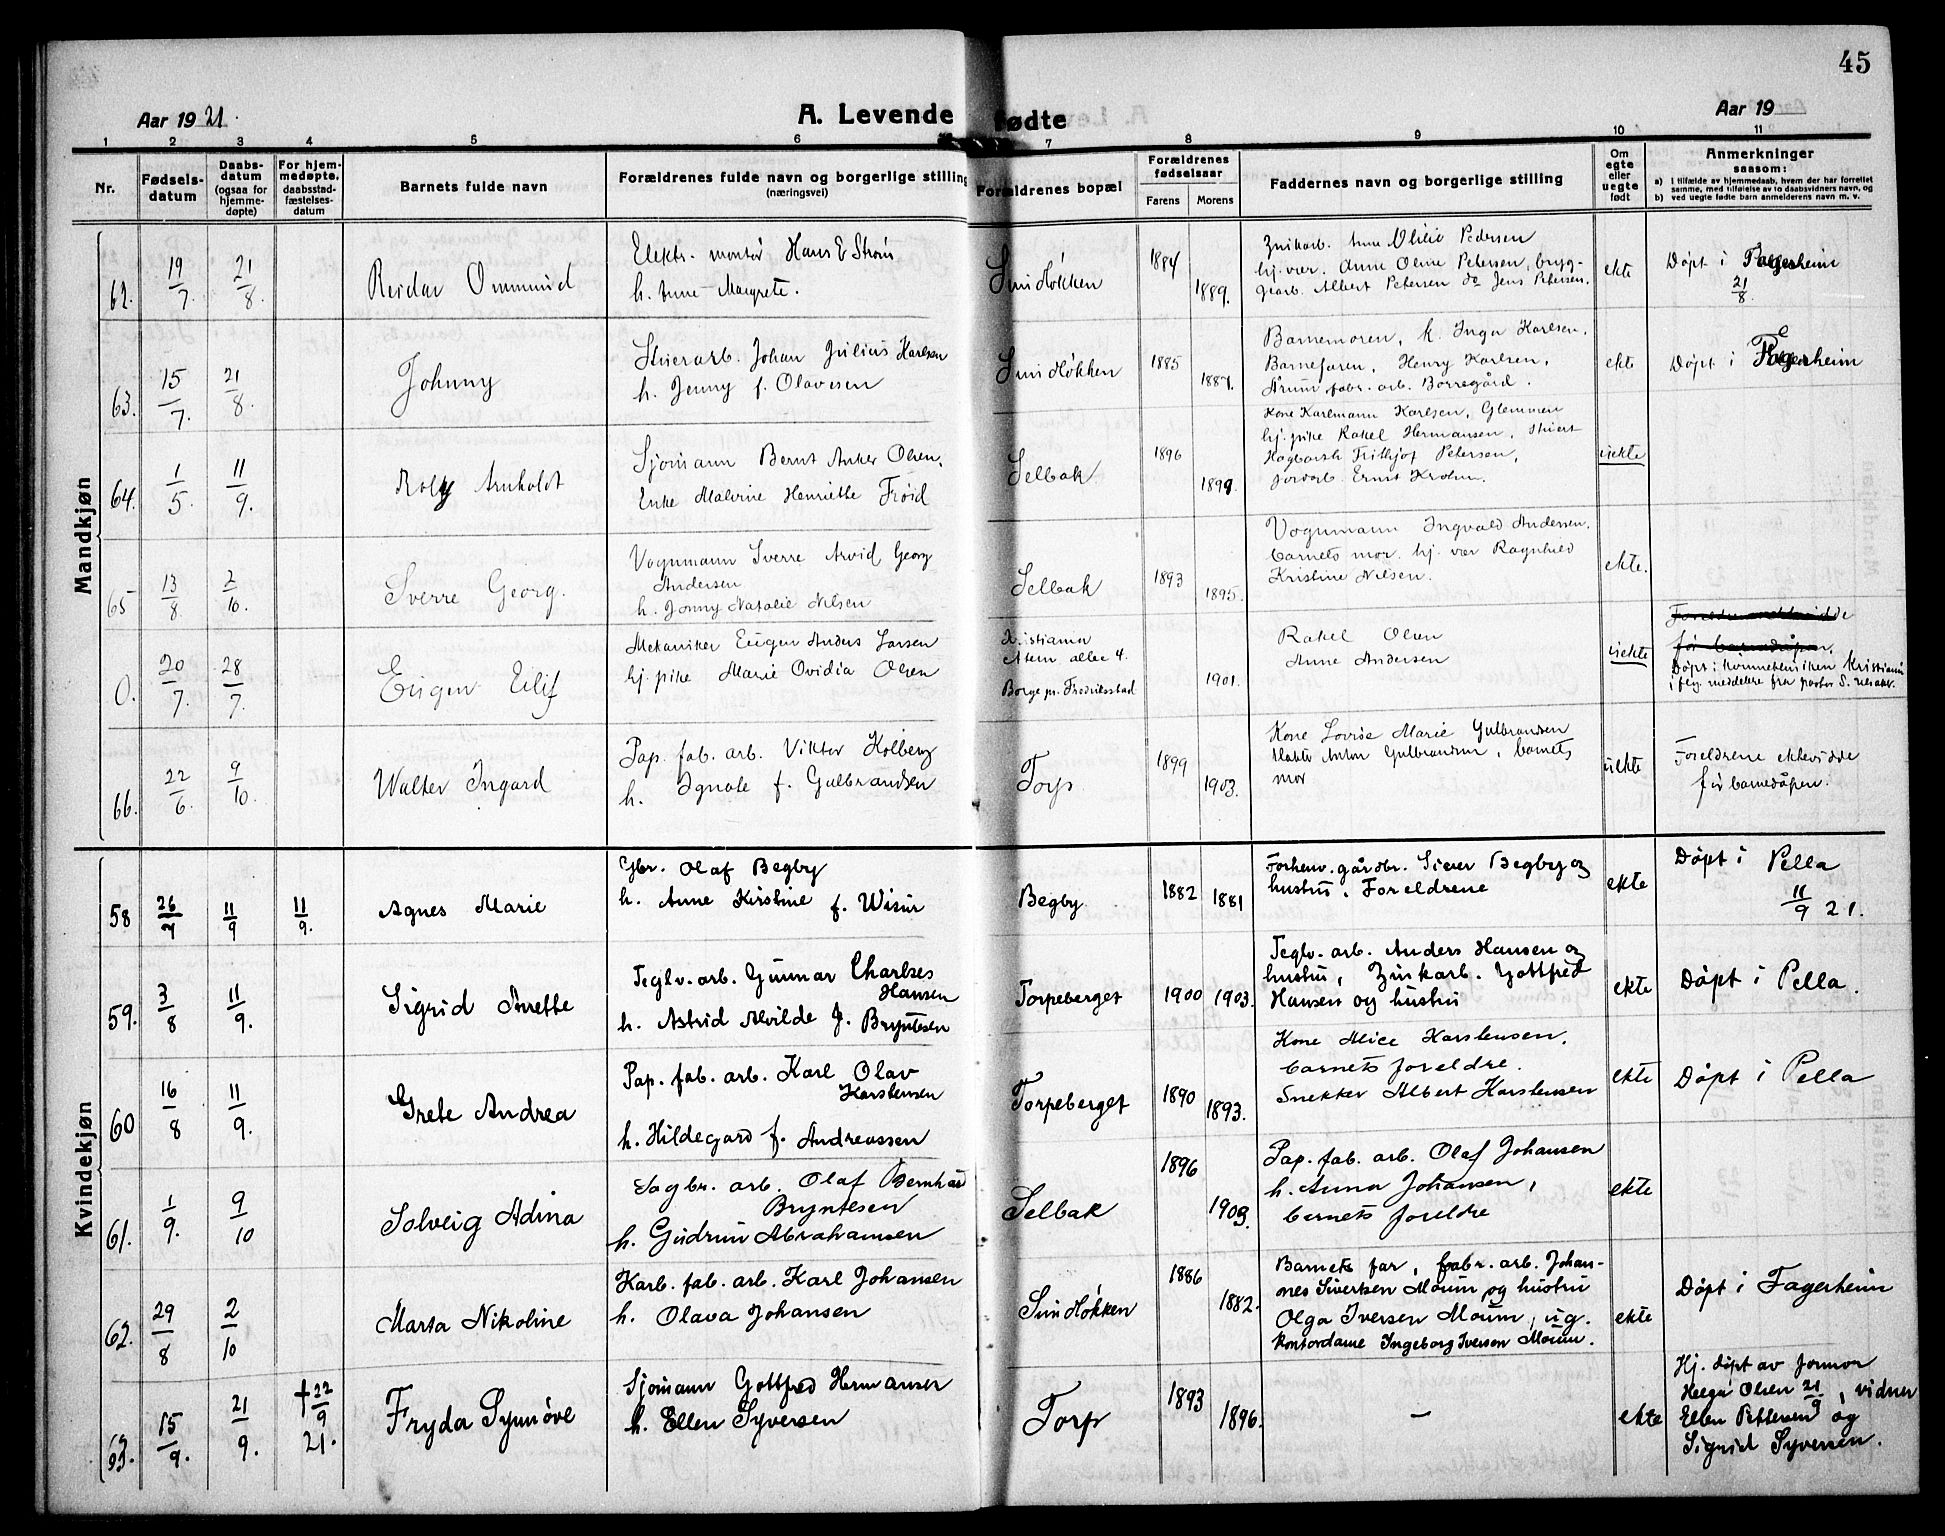 45
Aar 1921.
A. Levende fødte
Aar 19
1 2 3 4 5 6 7 8 9 10 11
Nr.
Fødsels-
datum
Daabs-
datum
(ogsaa for
hjemme-
døpte)
For hjem-
medøpte,
daabsstad-
fæstelses-
datum
Barnets fulde navn
Forældrenes fulde navn og borgerlige stilling
(næringsvei)
Forældrenes bopæl
Forældrenes
fødselsaar
Farens Morens
Faddernes navn og borgerlige stilling
Om
egte
eller
uegte
født
Anmerkninger
saasom:
a) i tilfælde av hjemmedaab, hvem der har forrettet
samme, med tilføielse av to daabsvidners navn, og
b) ved uegte fødte barn anmelderens navn m. v.
Mandkjøn
62. 19/7. 21/8. Reidar Ommund
Elektr. montør Hans E Strøm
h. Anne Margrete.
Lundløkken 1884 1889.
Zinkarb. Olsen Pedersen
hj. vær. Anne Oline Petersen, brygg-
gearb. Albert Petersen do Jens Petersen.
ekte
Døpt i Fagerheim
21/8.
63. 15/7. 21/8. Johnny
Stuerarb. Johan Julius Karlsen
h. Jenny f. Olavesen
Lundløkken 1885 1887.
Barnemoren, k. Inga Karlsen,
Barnefaren, Henry Karlsen,
fabr. arb. Borregård.
ekte
Døpt i Fagerheim
64. 1/5. 11/9. Rolf Arnholdt
Sjømann Bernt Anker Olsen.
Enke Malvine Henriette Frøid
Selbak 1896 1899.
Kone Karlmann Karlsen, Glemmen
hj. pike Rakel Hermansen, Stuert
Hagbarth Frithjof Petersen,
jarvarb. Ernst Krohn.
uekte
65 13/8. 2/10. Sverre Georg.
Vognmann Sverre Arvid Georg
Andersen
h. Jonny Natalie Nilsen
Selbak 1893 1895.
Vognmann Ingvald Andersen.
barnets mor. hj. vær Ragnhild
Kristine Nilsen.
ekte.
0. 20/7. 28/7. Eugen Eilif
Mekaniker Eugen Anders Larsen
hj. pike Marie Ovidia Olsen
Kristiania
allee 4.
Borge pr. Fredriksstad
1901.
Rakel Olsen
Anne Andersen
uekte
før barnedåpen,
Døpt i Kvinneklinikken Kristiania
i flg. meddelelse fra pastor
66. 22/6. 9/10. Walter Ingard
Pap. fab. arb. Viktor Kolberg
h. Ignate f. Gulbrandsen
Torp 1899 1903.
Kone Lovise Marie Gulbrandsen
Anton Gulbrandsen, barnets
mor
uekte
Foreldrene ekteviede
før barnedåpen.
Kvindekjøn
58 26/7 11/9 11/9. Agnes Marie
Gbr. Olaf Begby
h. Anne Kirstine f. Wisur
Begby. 1882 1881
Forhenv. gårdbr. Siver Begby og
hustru, Foreldrene
ekte
Døpt i Pella
11/9 21.
59. 3/8 11/9. Sigrid Anette
Teglv. arb. Gunnar Charlses
Hansen
h. Astrid Alvilde f. Bryntesen
Torpeberget 1900 1903.
Teglv. arb. Anders Hansen og
hustru, Zinkarb. Gottfred
Hansen og hustru
ekte
Døpt i Pella.
60 16/8 11/9. Grete Andrea
Pap. fab. arb. Karl Olav
Karstensen
h. Hildegard f. Andreassen
Torpeberget 1890 1893.
Kone Alice Karstensen,
barnets foreldre.
Snekker Albert Karstensen
ekte
Døpt i Pella
61. 1/9. 9/10 Solveig Adina
Sagbr. arb. Olaf Bernhard
Bryntesen
h. Gudrun Abrahamsen
Selbak 1896 1903.
Pap. fab. arb. Olaf Johansen
h. Anna Johansen,
barnets foreldre
ekte
62. 29/8 2/10 Marta Nikoline
Karb. fab. arb. Karl Johansen
h. Olava Johansen
Lundløkken 1886 1882.
Barnets far, fabr. arb. Johan-
nes Sivertsen Moum og hustru
Olga Iversen Moum, ug.
kontordame Ingeborg Iverson Moum.
ekte
Døpt i Fagerheim
63. 15/9. 21/9. †22/9 21. Fryda Synnøve
Sjømann Gottfred Hermansen
h. Ellen Syversen
Torp 1893 1896.
—
ekte
Hj. døpt av jormor
Helga Olsen 21/9, vidner
Ellen Pettersen og
Sigrid Syversen.